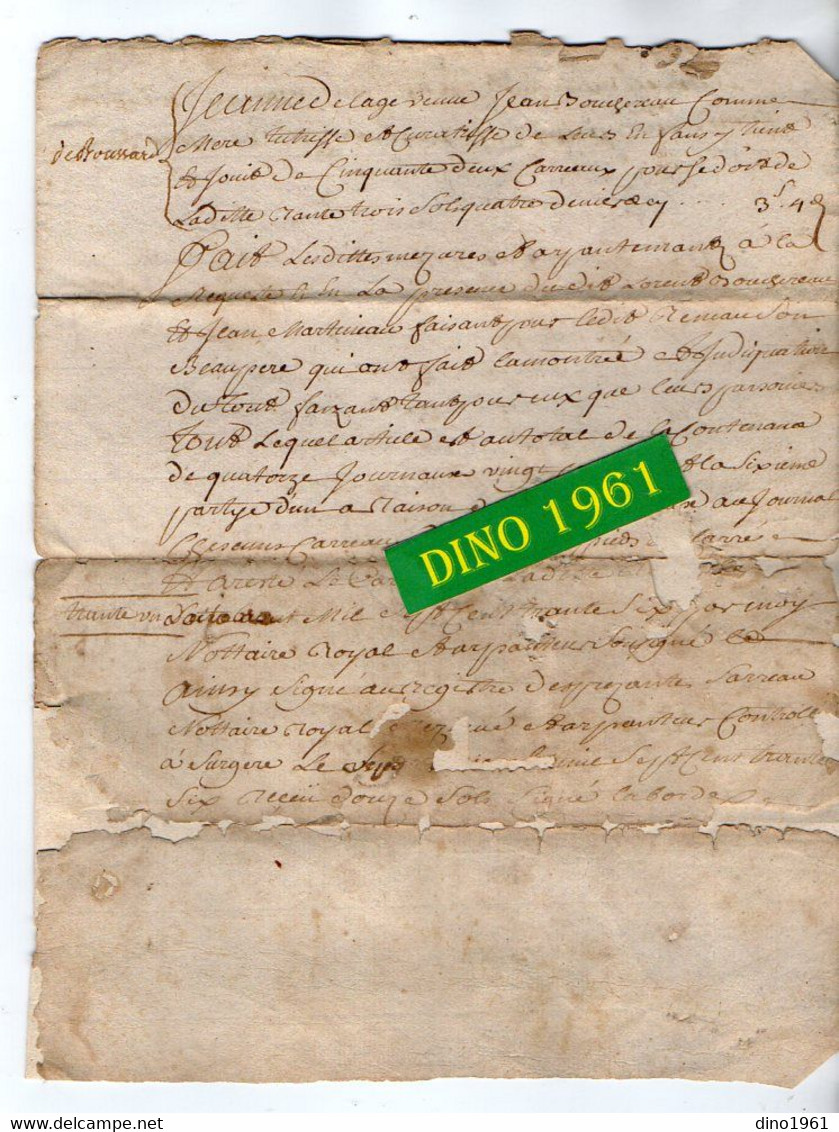 Jeanne Delage veuve Jean Bouzereau Comme
de Broussard
Mere tutrisse et Curatisse de Ses Enfans y tient
et Jouit de Cinquante deux Carreaux pour Se doit de
Laditte Rante trois Sols quatre deniers cy .... 3s 4d
Fait Lesdittes mezures et arpantemant à la
Requeste et En La presence du dit Lorent Bouzereau
et Jean Martineau faisant pour ledit Reneau Son
Beaupere qui ont fait la montrée et Judiquation
du tout faizant tant pour eux que leurs parsoniers
tout Lequel article est au total de la Contenance
de quatorze Journaux vingt et la Sixieme
partye d'un a Raison au Journal
Chescuns Carreau pieds Carré
et areste Le Laditte
trante un
aout Mil Sept Cent trante Six par moy
Nottaire Royal et arpanteur Sousigné
ainsy Signé au Registre des prezantes Sarreau
Nottaire Royal et arpanteur Controllé
à Surgere Le mil Sept Cent trante
Six Reçu douze Sols Signé laborde
DINO 1961
dino1961